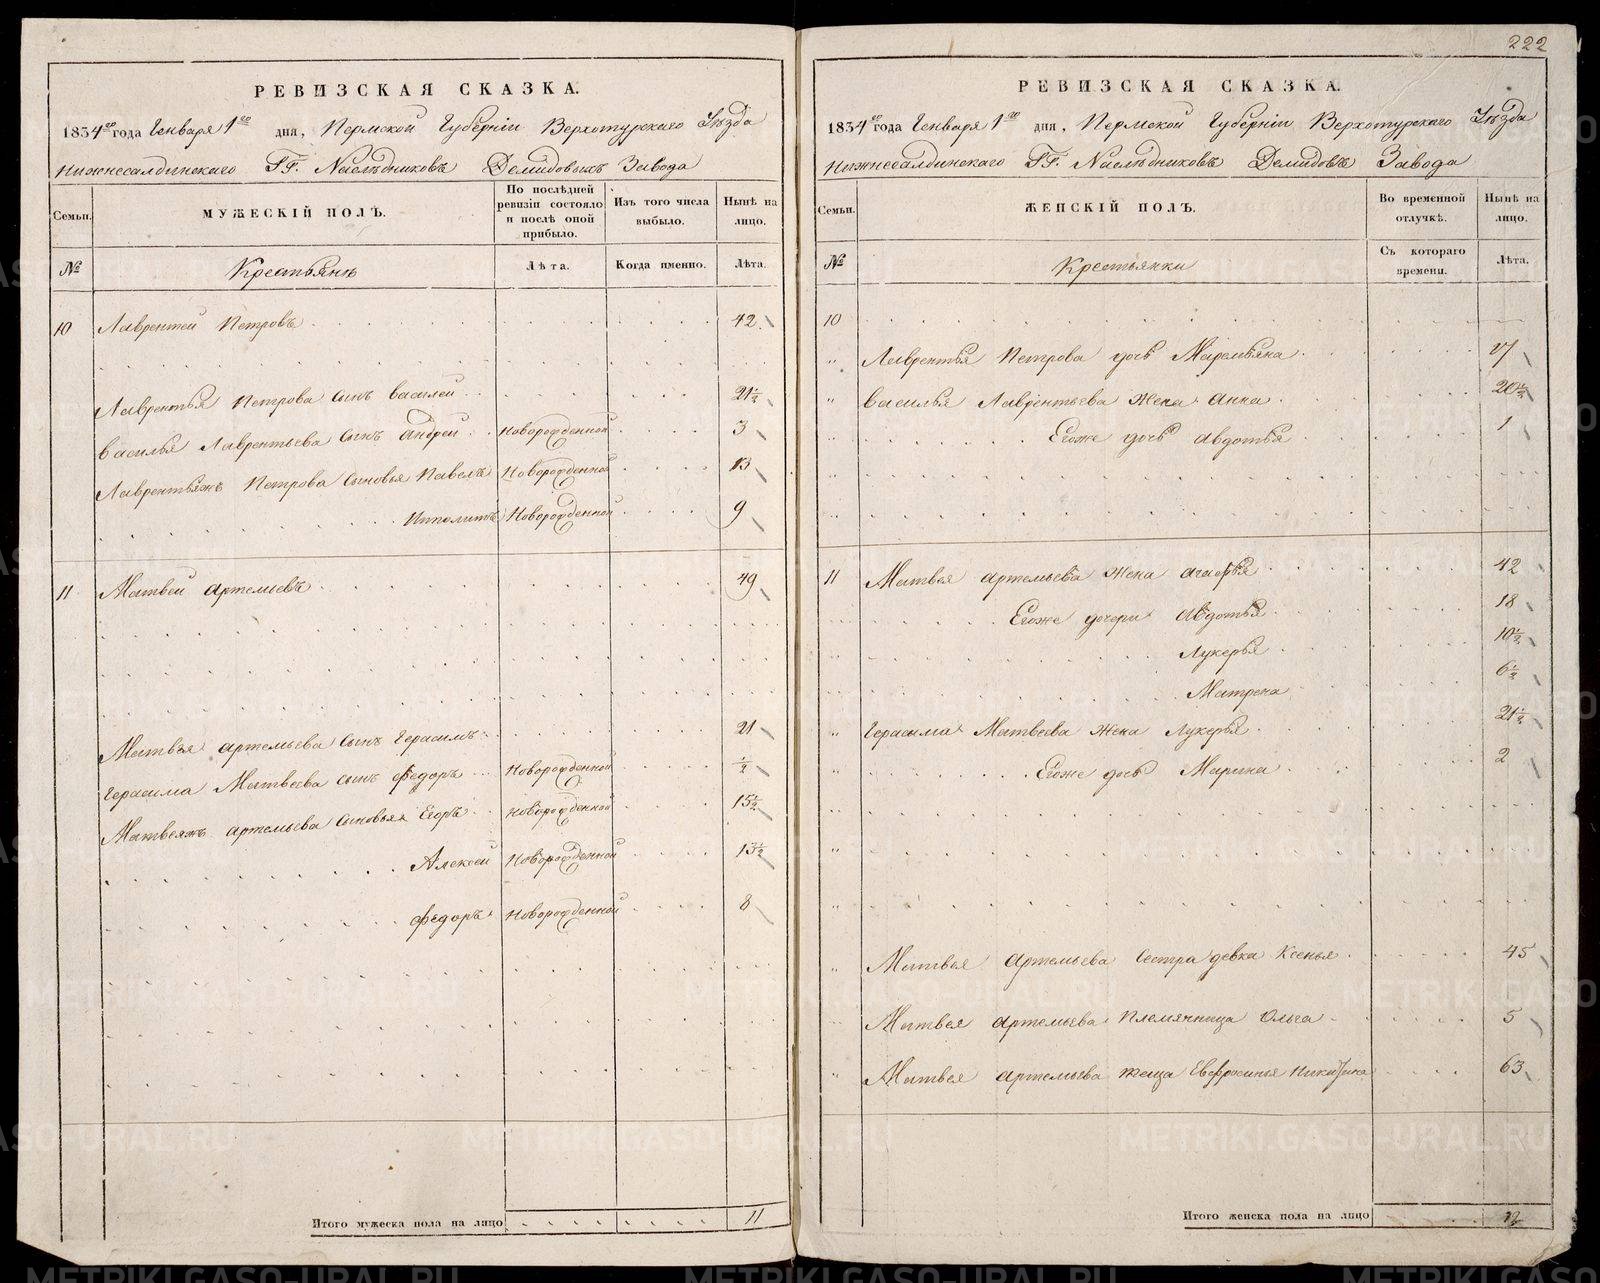 222
РЕВИЗСКАЯ СКАЗКА.
1834го года Генваря 1го дня, Пермской Губерніи Верхотурскаго Уѣзда
Нижнесалдинскаго ГГ. Наслѣдниковъ Демидовыхъ Завода
Семьи.
МУЖЕСКІЙ ПОЛЪ.
По послѣдней ревизіи состояло и послѣ оной прибыло.
Изъ того числа выбыло.
Нынѣ на лицо.
№
Крестьянѣ
Лѣта.
Когда именно.
Лѣта.
10 Лаврентей Петровъ 42
Лаврентья Петрова сынъ Василей 21½
Василья Лаврентьева сынъ Андрей Новорожденной 3
Лаврентьяжъ Петрова сыновья Павелъ Новорожденной 13
Иполитъ Новорожденной 9
11 Матвей Артемьевъ 49
Матвея Артемьева сынъ Герасимъ 21
Герасима Матвеева сынъ Федоръ Новорожденной ½
Матвеяжъ Артемьева сыновья Егоръ Новорожденной 15½
Алексей Новорожденной 13½
Федоръ Новорожденной 8
Итого мужеска пола на лицо 11
РЕВИЗСКАЯ СКАЗКА.
1834го года Генваря 1го дня, Пермской Губерніи Верхотурскаго Уѣзда
Нижнесалдинскаго ГГ. Наслѣдниковъ Демидовыхъ Завода
Семьи.
ЖЕНСКІЙ ПОЛЪ.
Во временной отлучкѣ.
Нынѣ на лицо.
№
Крестьянки
Съ котораго времени.
Лѣта.
10
Лаврентья Петрова дочь Маремьяна 17
Василья Лаврентьева жена Анна 20½
Егоже дочь Авдотья 1
11 Матвея Артемьева жена Агафья 42
Егоже дочери Авдотья 18
Лукерья 10½
Матрена 6½
Герасима Матвеева жена Лукерья 21½
Егоже дочь Марина 2
Матвея Артемьева сестра девка Ксенья 45
Матвея Артемьева племянница Ольга 5
Матвея Артемьева теща Евфросинья Никитина 63
Итого женска пола на лицо 12
METRIKI.GASO-URAL.RU